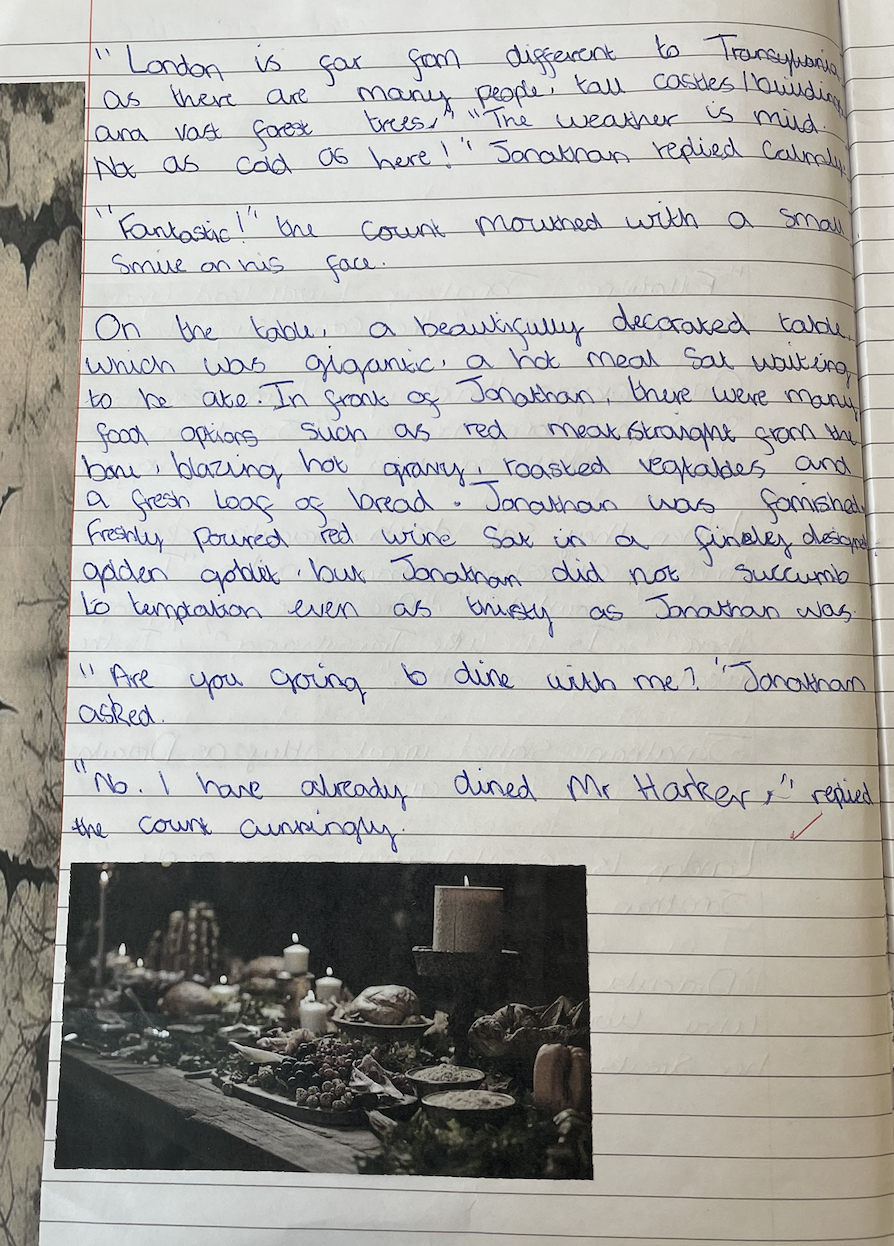 "London is far from different to Transylvania
as there are many people, tall castles/building
and vast forest trees." "The weather is mild.
Not as cold as here!" Jonathan replied calmly.
"Fantastic!" the count mouthed with a small
smile on his face.
On the table, a beautifully decorated table
which was gigantic, a hot meal sat waiting
to be ate. In front of Jonathan, there were many
food options such as red meat straight from the
bone, blazing hot gravy, roasted vegtables and
a fresh loaf of bread. Jonathan was famished.
Freshly poured red wine sat in a finely designed
golden goblit, but Jonathan did not succumb
to temptation even as thirsty as Jonathan was.
"Are you going to dine with me?" Jonathan
asked.
"No. I have already dined Mr Harker," replied
the count cunningly.